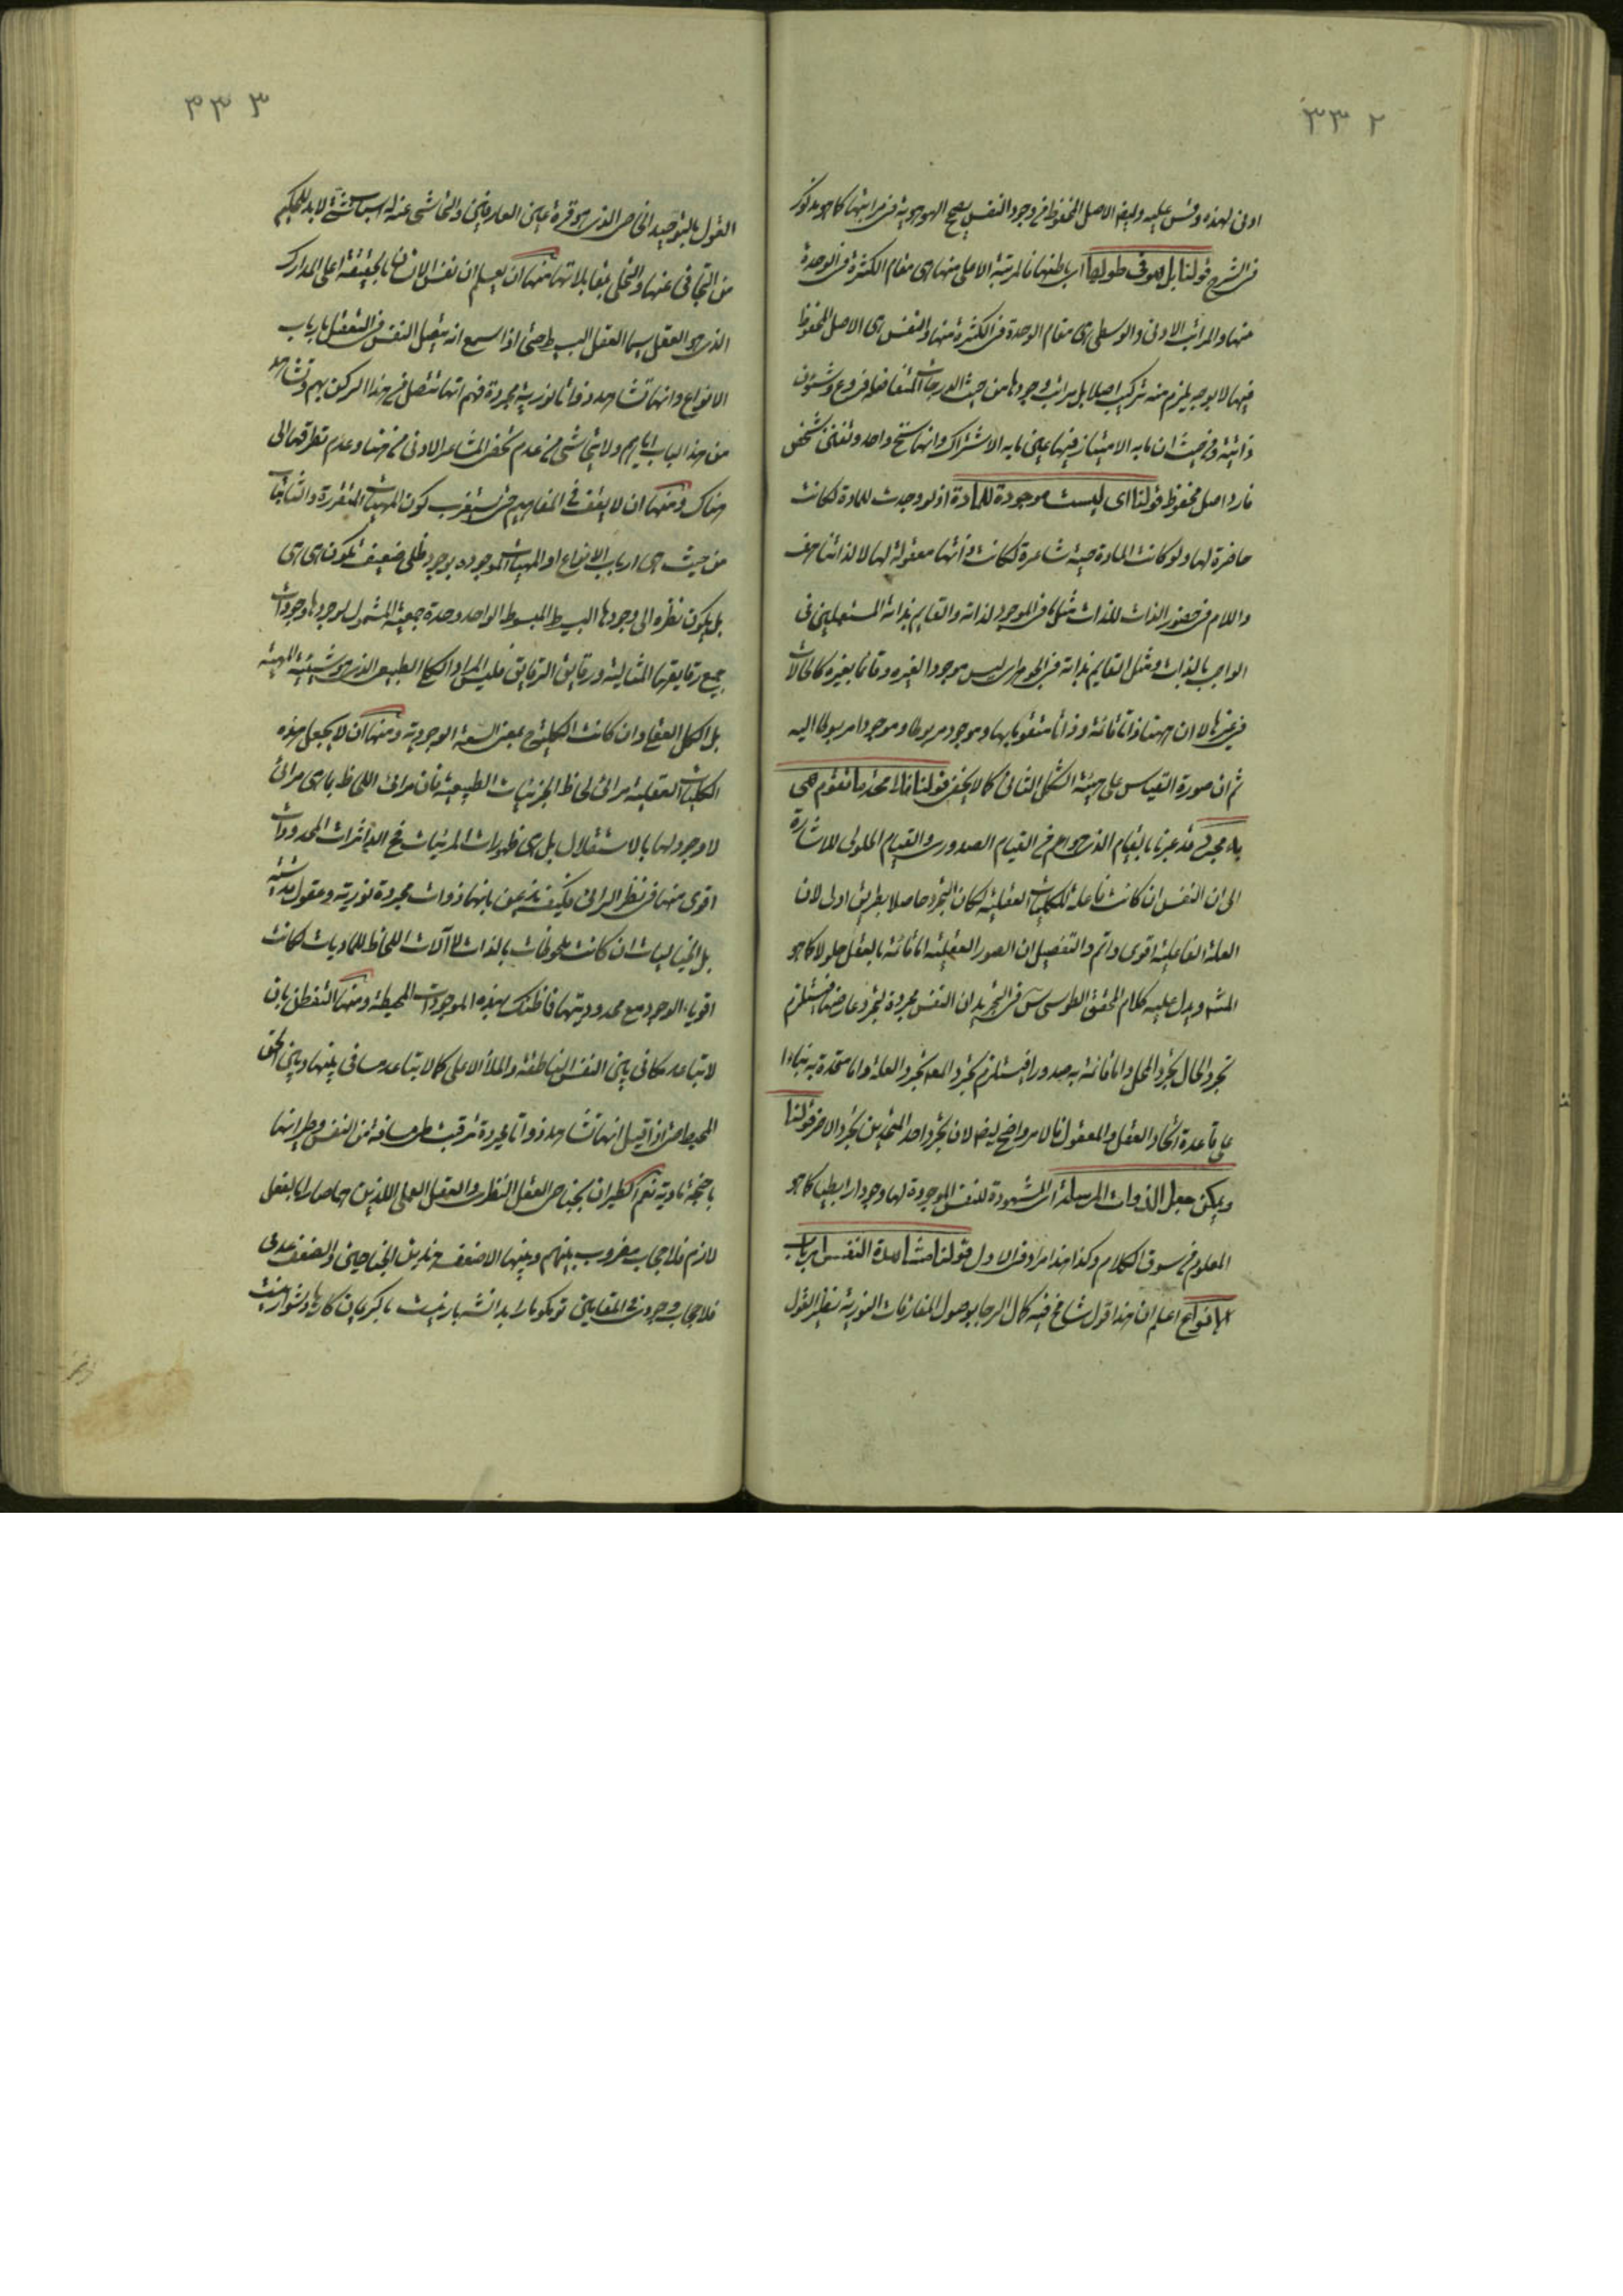 ٣٣٢
ادنى لهذه وقس عليه وايضا الاصل المحفوظ فى وجود النفس يصحح الهوهوية فى مراتبها كما هو مذكور
فى الشرح قولنا بل هو فى طولها اى باطنها فالمرتبة الاعلى منها هى مقام الكثرة فى الوحدة
منها والمراتب الادنى والوسطى هى مقام الوحدة فى الكثرة منها والنفس هى الاصل المحفوظ
فيها لا بوجه يلزم منه تركيب اصلا بل مراتب وجودها من حيث الدرجات المتفاضلة فروع وشئون
ذاتية وحيث ان ما به الامتياز فيها عين ما به الاشتراك وانها سنخ واحد و شخص
فارد واصل محفوظ قولنا اى ليست موجودة للمادة اذ لو وجدت للمادة لكانت
حاضرة لها ولو كانت المادة حية شاعرة لكانت معقولة لها لا لذاتها هف
واللام فى حضور الذات للذات مثلها فى الموجود لذاته والقايم بذاته المستعملين فى
الواجب بالذات ومثل القايم بذاته فى الجوهر اى ليس موجودا لغيره وقائما بغيره كالحالات
فى غيرها لا ان هنا ذاتا قائمة وذاتا متقوما بها وموجود مربوط وموجودا مربوطا اليه
ثم ان صورة القياس على هيئة الشكل الثانى كما لا يخفى قولنا فالامجد ما تقوم هى
به مجرد قد عبرنا بالقيام الذى هو اعم من القيام الصدورى والقيام الحلولى للاشارة
الى ان النفس ان كانت فاعلة للكليات العقلية لكان التجرد حاصلا بطريق اولى لان
العلة الفاعلية اقوى واتم والتفصيل ان الصور العقلية اما قائمة بالعقل حلولا كما هو
المش ويدل عليه كلام المحقق الطوسى س فى التجريد ان النفس مجردة لتجرد عارضها فيستلزم
تجرد الحال تجرد المحل واما قائمة به صدورا فيستلزم تجرد المع تجرد العلة واما متحدة به بناءا
على قاعدة اتحاد العقل والمعقول فالامر واضح ايضا لان تجرد احد المتحدين تجرد الاخر قولنا
ويمكن جعل الذوات المرسلة اى المشهودة للنفس الموجودة لها وجودا رابطيا كما هو
المعلوم من سوق الكلام وكذا هذا مراد فى الاول قولنا مشاهدة النفس ارباب
الانواع اعلم ان هذا قول شامخ فيه كمال الرجا بوصول المفارقات النورية نظير القول
٣٣٣
القول بالتوحيد الخاص الذى هو قرة عين العارفين والتحاشى عنه اسباب شتى لا بد للحكيم
من التجافى عنها والتحلى بمقابلاتها منها ان يعلم ان نفس الانسان بالحقيقة اعلى المدارك
الذى هو العقل سيما العقل البسيط حتى اذا سمع انه يتصل النفس فى التعقل بارباب
الانواع وانها تشاهد ذواتا نورية مجردة فهم انها تتصل من هذا الركن بهم وتشاهد
من هذا الباب اياهم ولا يتحاشى من عدم تخطى المشاعر الادنى من هنا وعدم تطرقها الى
هناك ومنها ان لا يقف فى المفاهيم حتى يستغرب كون المهيات المتقررة والثابتات
من حيث هى ارباب الانواع او المهيات الموجودة بوجود ظلى ضعيف تكون هى هى
بل يكون نظره الى وجودها البسيط المبسوط الواحد وحدة جمعية المشمول لوجودها وجودات
جميع رقايقها المثالية ورقايق الرقايق فليس المراد الكلى الطبيعى الذى هو شيئية المهية
بل الكلى العقلى وان كانت الكلية ح بمعنى السعة الوجودية ومنها ان لا يجعل هذه
الكليات العقلية مرائى لحاظ الجزئيات الطبيعية فان مرائى اللحاظ بما هى مرائى
لا وجود لها بالاستقلال بل هى ظهورات المرئيات فح الداثرات المحدودات
اقوى منها فى نظر الرائى فكيف يذعن بانها ذوات مجردة نورية وعقول قدسية
بل الخياليات ان كانت ملحوظات بالذات لا آلات اللحاظ للماديات كانت
اقوياء الوجود مع محدوديتها فما ظنك بهذه الموجودات المحيطة ومنها التفطن بان
لا تباعد مكانى بين النفس الناطقة والملأ الاعلى كما لا تباعد مسافى بينها وبين الحق
المحيط حتى اذا قيل انها تشاهد ذواتا مجردة ترقب طى مسافة من النفس وطيرانها
باجنحة مادية نعم الطيران بجناحى العقل النظرى والعقل العملى اللذين هما صارا بالفعل
لازم فلا حجاب مضروب بينهم وبينها الا ضعف هذين الجناحين والضعف عدمى
فلا حجاب وجودى فى المقابين تو مگو ما را بدان شه بار نيست با كريمان كارها دشوار نيست